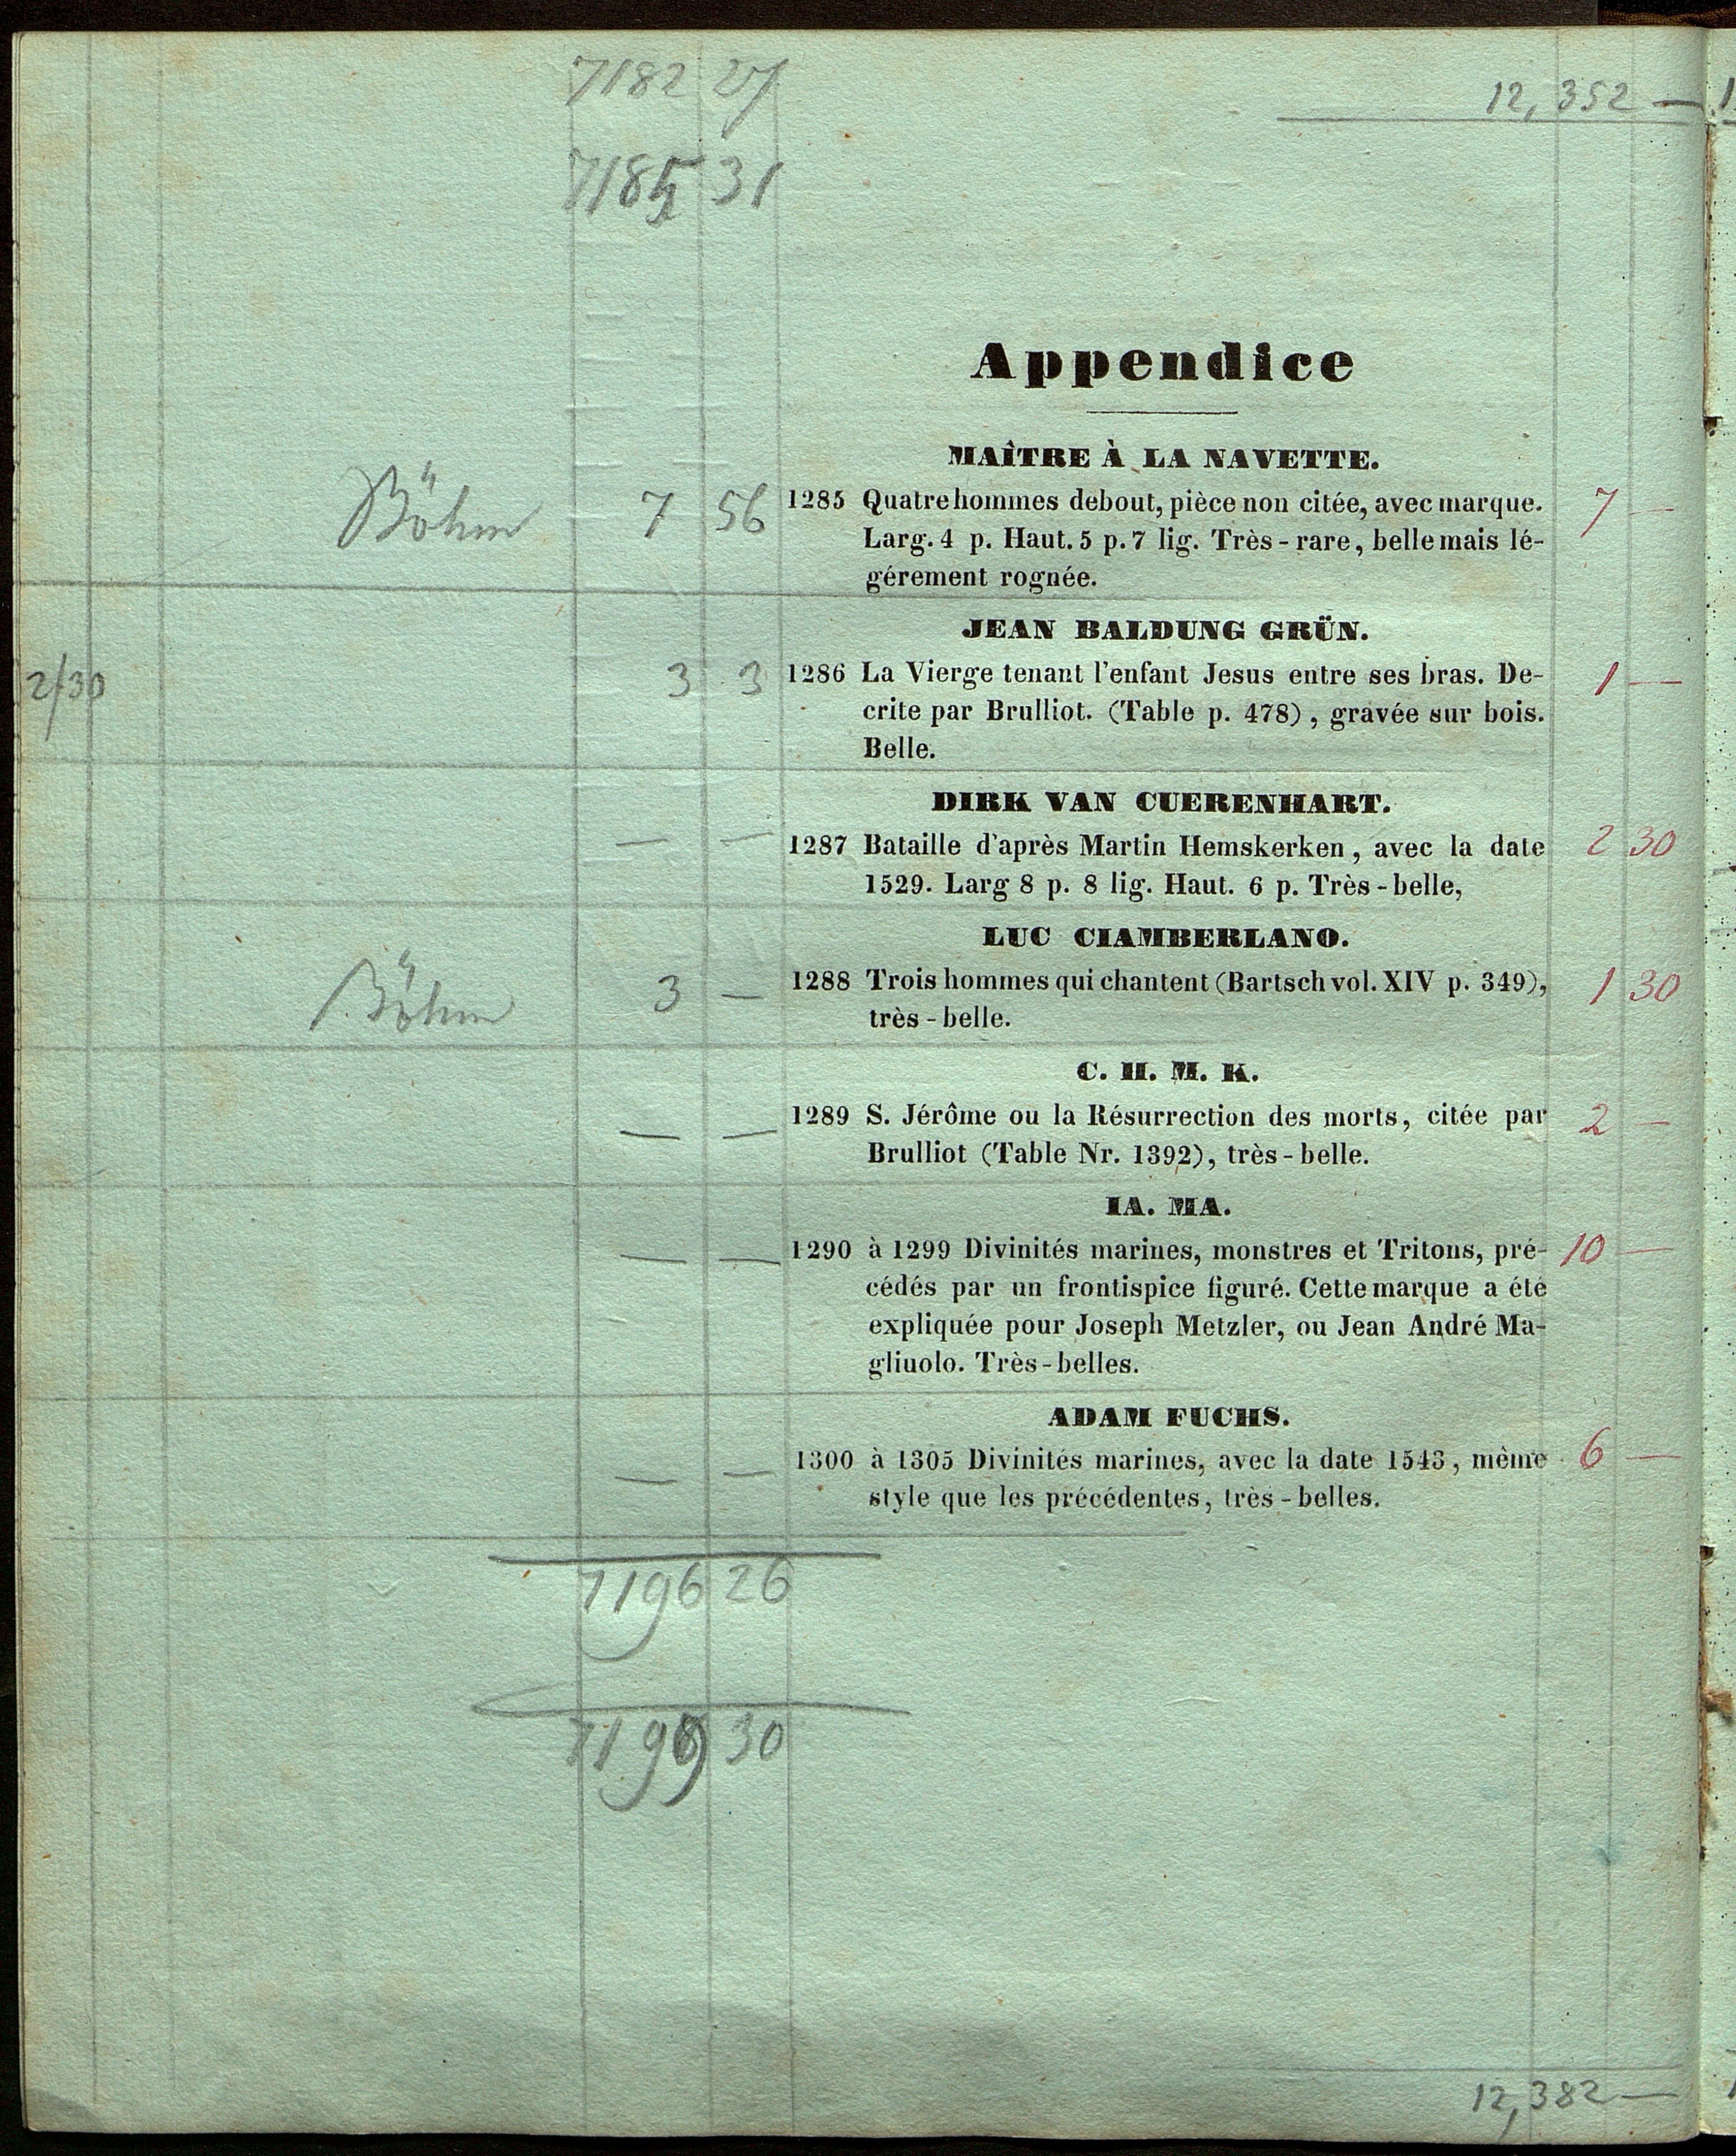 7182 27
12,352 —
7185 31
Appendice
MAÎTRE À LA NAVETTE.
Böhm 7 56 1285 Quatre hommes debout, pièce non citée, avec marque. 7 —
Larg. 4 p. Haut. 5 p. 7 lig. Très-rare, belle mais lé-
gérement rognée.
JEAN BALDUNG GRÜN.
2/30 3 3 1286 La Vierge tenant l'enfant Jesus entre ses bras. De- 1 —
crite par Brulliot. (Table p. 478), gravée sur bois.
Belle.
DIRK VAN CUERENHART.
— — 1287 Bataille d'après Martin Hemskerken, avec la date 2 30
1529. Larg 8 p. 8 lig. Haut. 6 p. Très-belle,
LUC CIAMBERLANO.
Böhm 3 — 1288 Trois hommes qui chantent (Bartsch vol. XIV p. 349), 1 30
très-belle.
C. H. M. K.
— — 1289 S. Jérôme ou la Résurrection des morts, citée par 2 —
Brulliot (Table Nr. 1392), très-belle.
IA. MA.
— — 1290 à 1299 Divinités marines, monstres et Tritons, pré- 10 —
cédés par un frontispice figuré. Cette marque a été
expliquée pour Joseph Metzler, ou Jean André Ma-
gliuolo. Très-belles.
ADAM FUCHS.
— — 1300 à 1305 Divinités marines, avec la date 1543, même 6 —
style que les précédentes, très-belles.
7196 26
7199 30
12,382 —